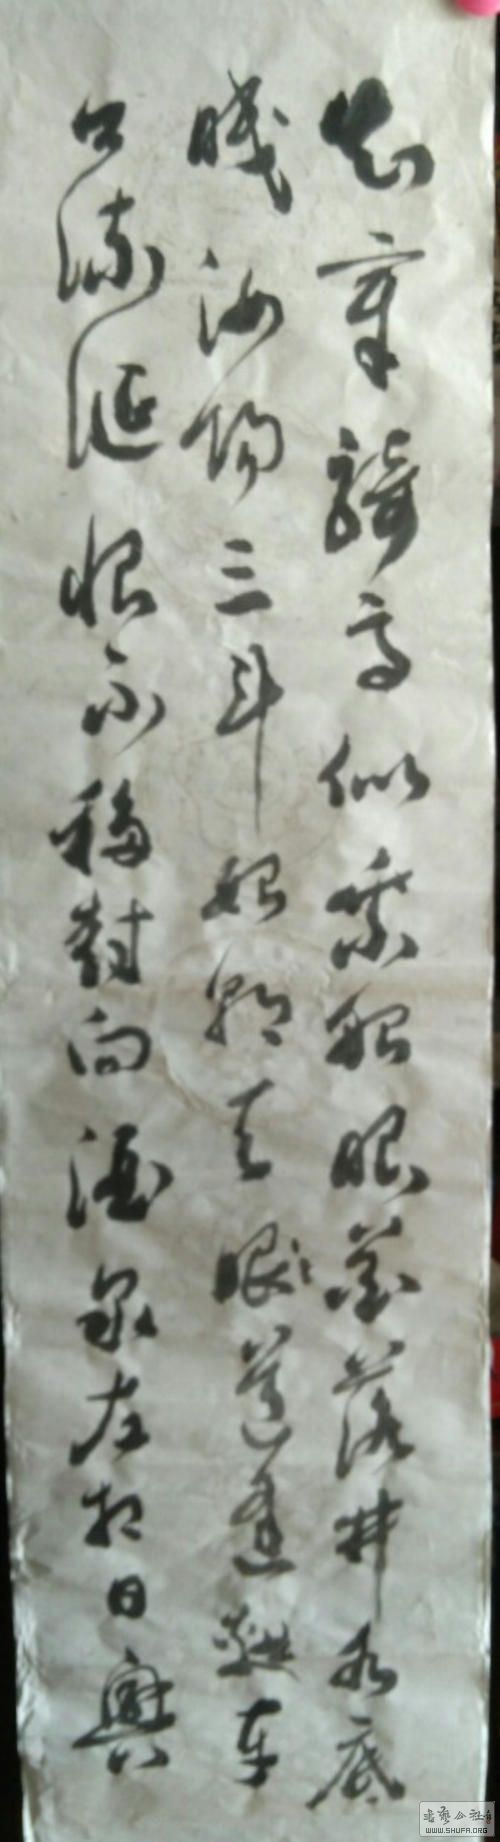 知章騎馬似乘船眼花落井水底
眠汝陽三斗始朝天眼道逢麹車
口流涎恨不移封向酒泉左相日興
書藝公社
WWW.SHUFA.ORG